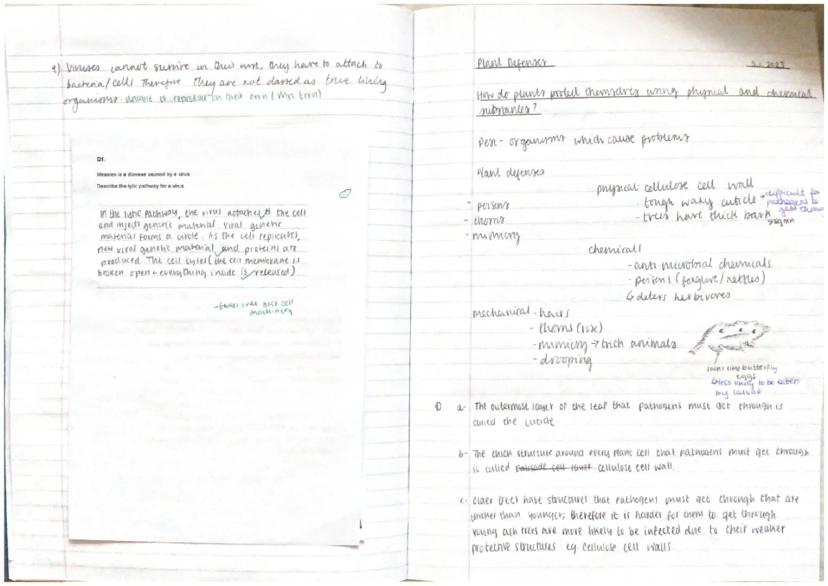 4) Viruses cannot survive on their own, they have to attach to
bacteria/cells Therefore They are not classed as true living
organisms. unable to reproduce on their own (Mrs Gren)
Q1.
Measles is a disease caused by a virus
Describe the lytic pathway for a virus
In the lytic pathway, the virus attaches to the cell
and injects genetic material. Viral genetic
material forms a circle. As the cell replicates,
new viral genetic material and proteins are
produced. The cell lyses (the cell membrane is
broken open + everything inside is released)
-takes over host cell
machinery
Plant Defenses
2023
How do plants protect themselves using physical and chemical
substances?
Pest - organisms which cause problems
Plant defenses
- poisons
- thorns
- mimicing
physical: cellulose cell wall
- tough waxy cuticle → difficult for
pathogens to
- trees have thick bark
chemicals
- anti-microbial chemicals
- poisons (foxglove/nettles)
↳ deters herbivores
mechanical - hairs
- thorns
- mimicing → trick animals
- drooping
looks like butterfly
eggs
↳less likely to be eaten
by larvae
① a- The outermost layer of the leaf that pathogens must get through is
called the cuticle
b- The thick structure around every plant cell that pathogens must get through
is called palisade cell layer cellulose cell wall.
c- Older trees have structures that pathogens must get through that are
thicker than younger, therefore it is harder for them to get through
young ash trees are more likely to be infected due to their weaker
protective structures eg. cellulose cell walls